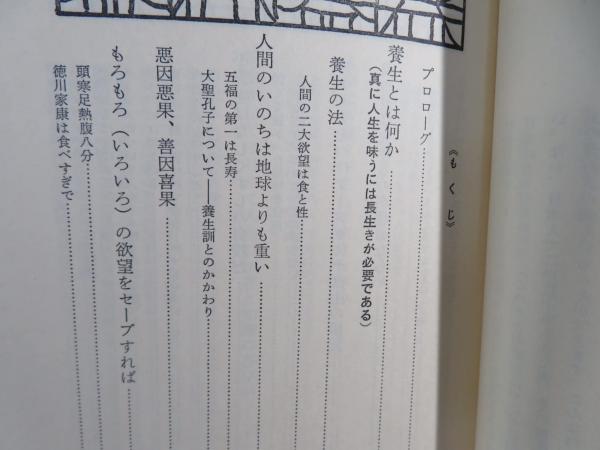 《もくじ》
プロローグ
養生とは何か
(真に人生を味うには長生きが必要である)
養生の法
人間の二大欲望は食と性
人間のいのちは地球よりも重い
五福の第一は長寿
大聖孔子について——養生訓とのかかわり
悪因悪果、善因喜果
もろもろ(いろいろ)の欲望をセーブすれば
頭寒足熱腹八分
徳川家康は食べすぎで